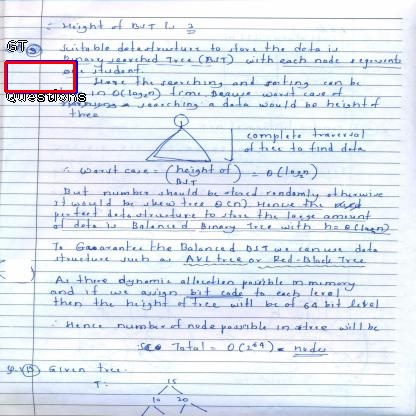 ∴ Height of BST is 3
GT
Suitable data structure to store the data is
Binary searched Tree (BST) with each node represents
one student.
Here the searching and sorting can be
in O(log₂n) time. Because worst case of
searching a data would be height of
tree
complete traversal
of tree to find data
∴ worst case = (height of BST) = O(log₂n)
But number should be stored randomly otherwise
it would be skew tree O(n) Hence the
perfect data structure to store the large amount
of data is Balanced Binary Tree with h=O(log n)
To Guarantee the Balanced BST we can use data
structure such as AVL tree or Red-Black Tree
As there dynamic allocation possible in memory
and if we assign bit code to each level
then the height of tree will be of 64 bit level
∴ Hence number of node possible in tree will be
Total = O(2⁶⁴) nodes
Given tree.
T: 15
10 20
Questions